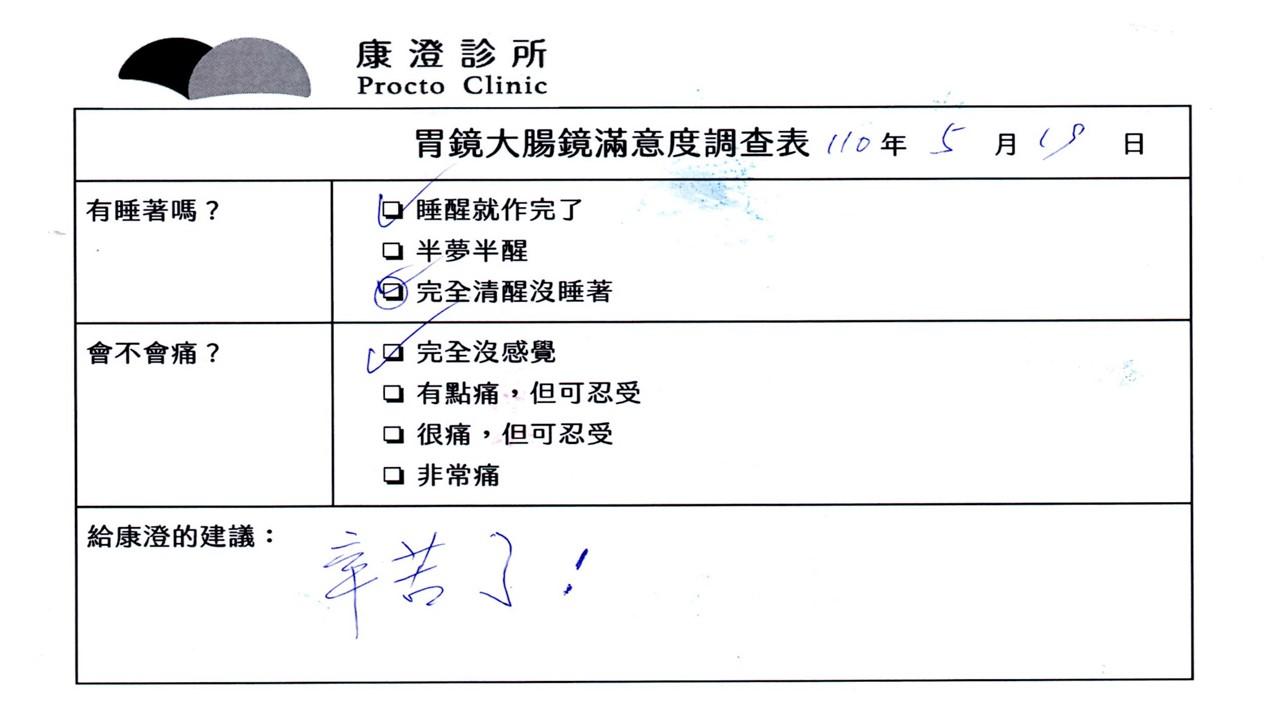 康澄診所
Procto Clinic
胃鏡大腸鏡滿意度調查表 110年 5 月 19 日
有睡著嗎？
☑ 睡醒就作完了
☐ 半夢半醒
☑ 完全清醒沒睡著
會不會痛？
☑ 完全沒感覺
☐ 有點痛，但可忍受
☐ 很痛，但可忍受
☐ 非常痛
給康澄的建議：
辛苦了！